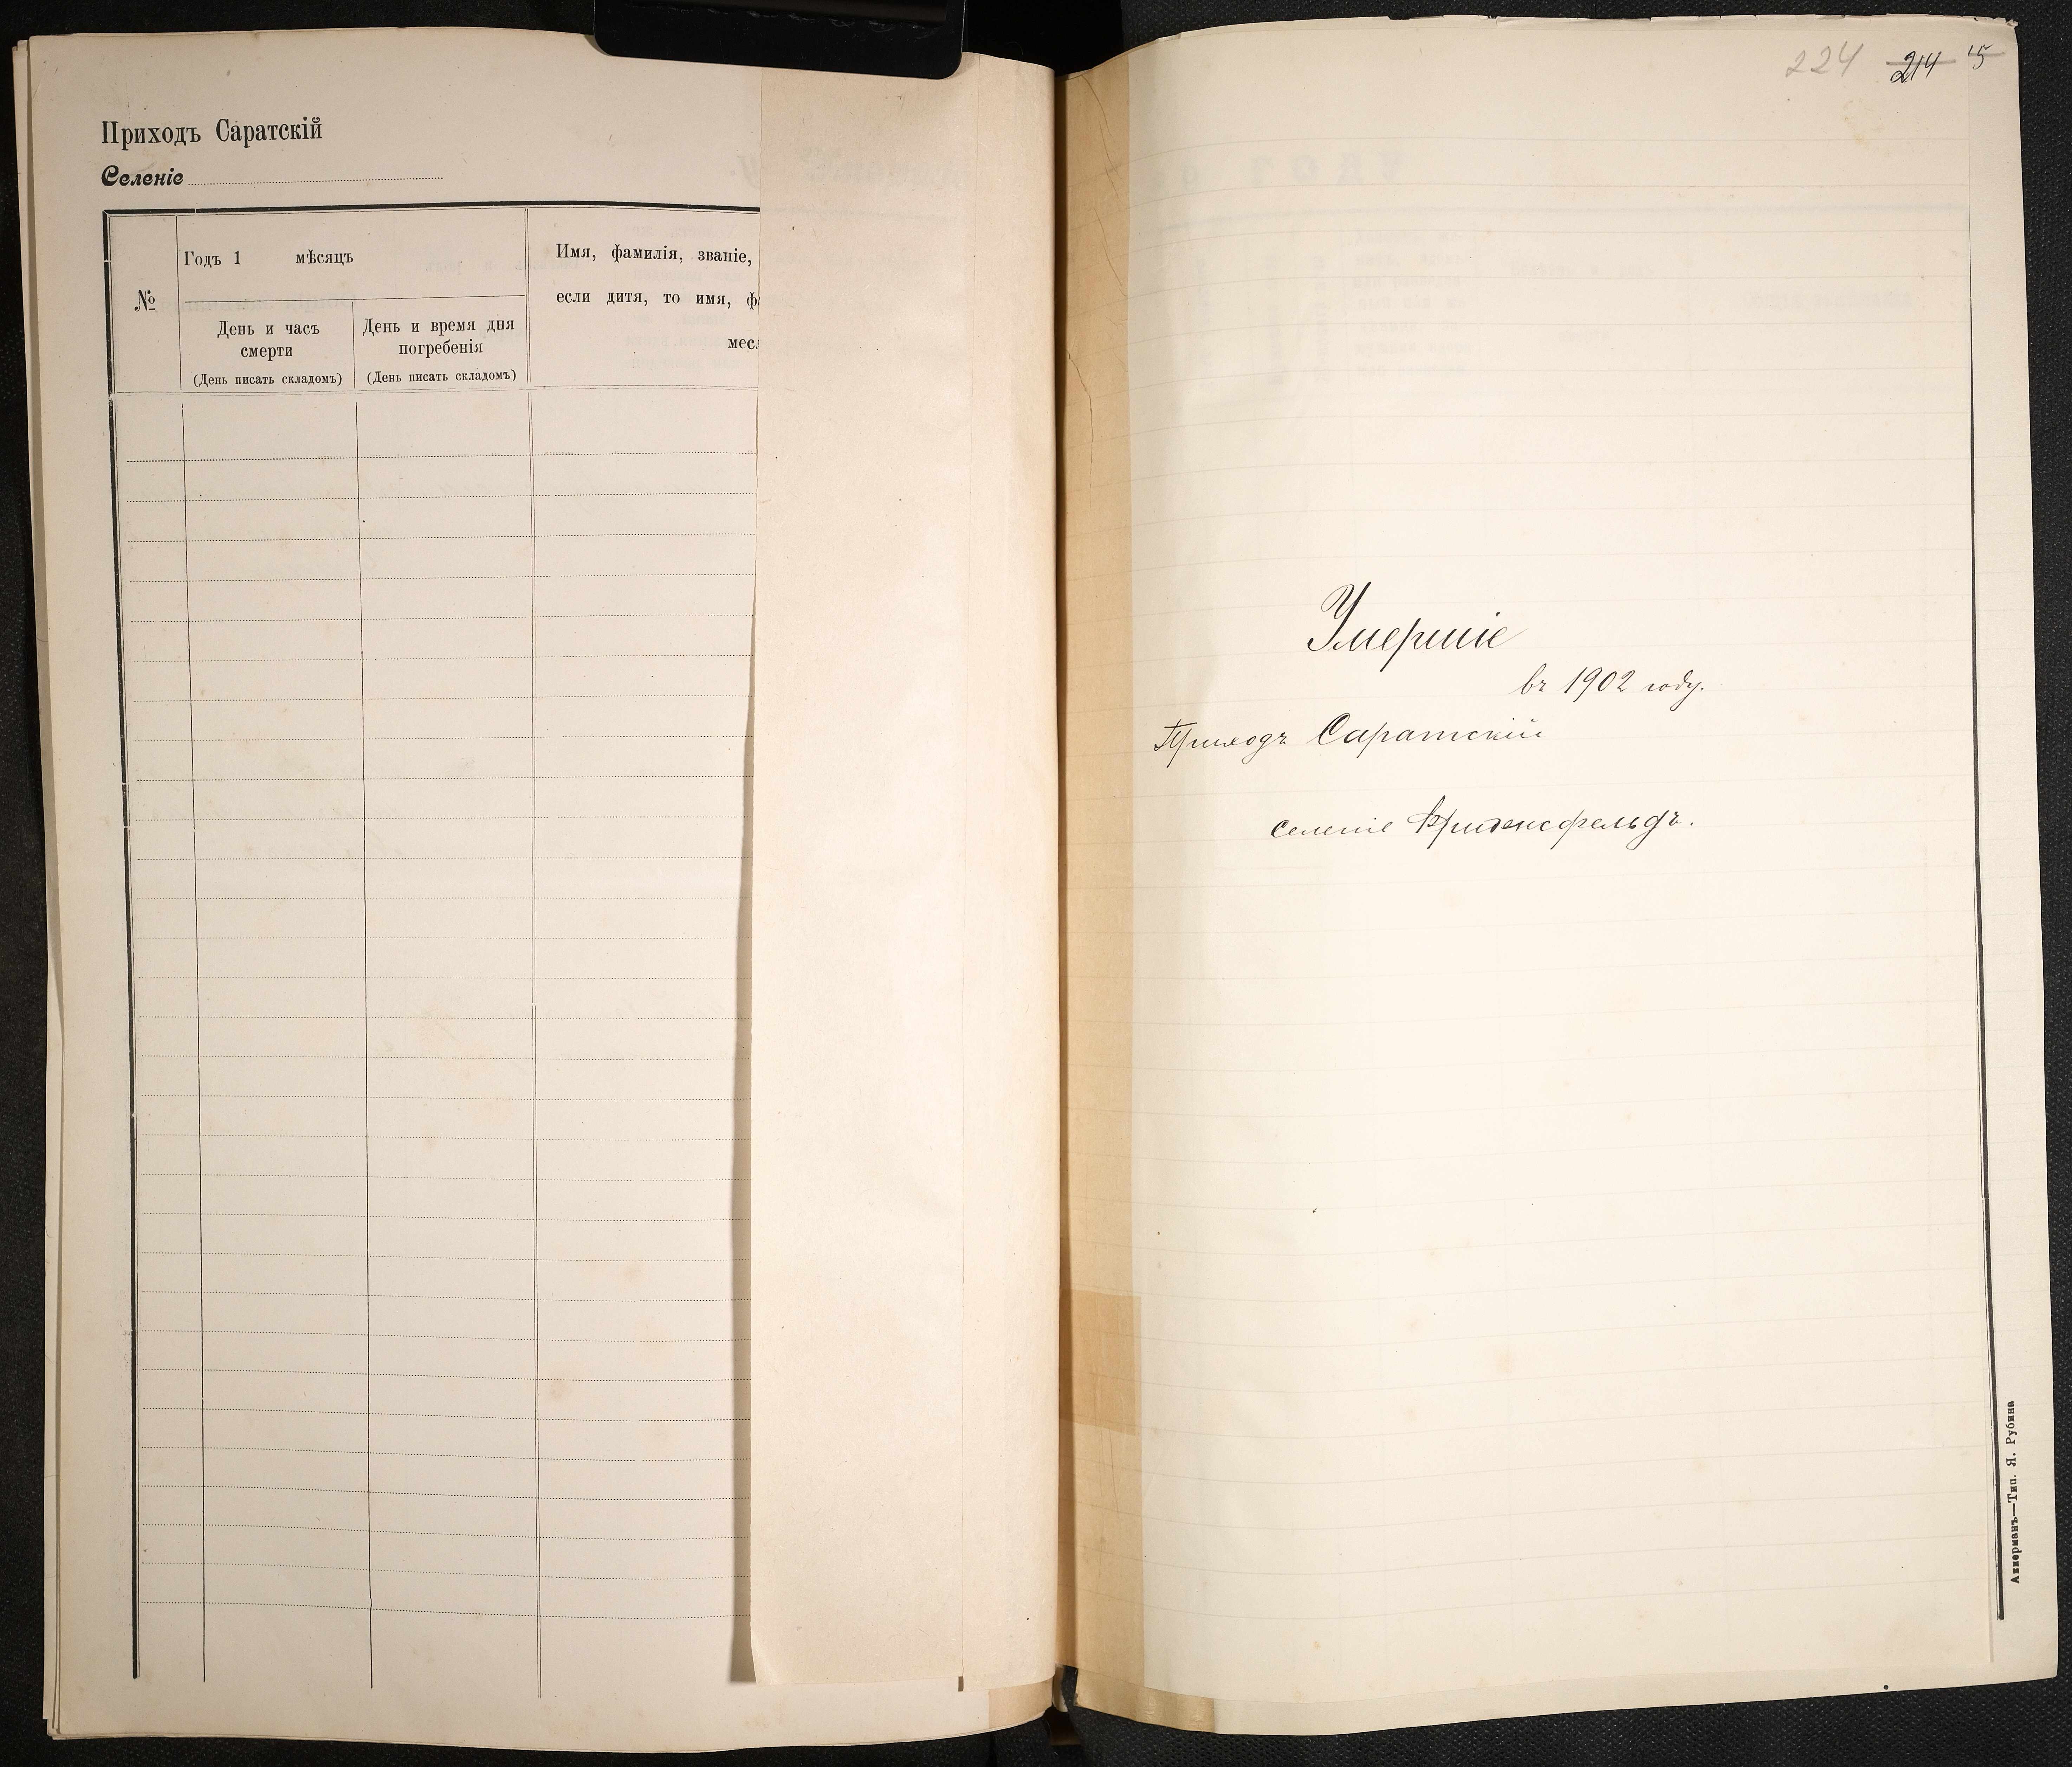 Приходъ Саратскій
Селеніе
№
Годъ 1 мѣсяцъ
День и часъ
смерти
(День писать складомъ)
День и время дня
погребенія
(День писать складомъ)
Имя, фамилія, званіе,
если дитя, то имя, ф
мес
224 214 15
Умершіе
въ 1902 году.
Приходъ Саратскій
селеніе Фриденсфельдъ.
Аккерманъ—Тип. Я. Рубина